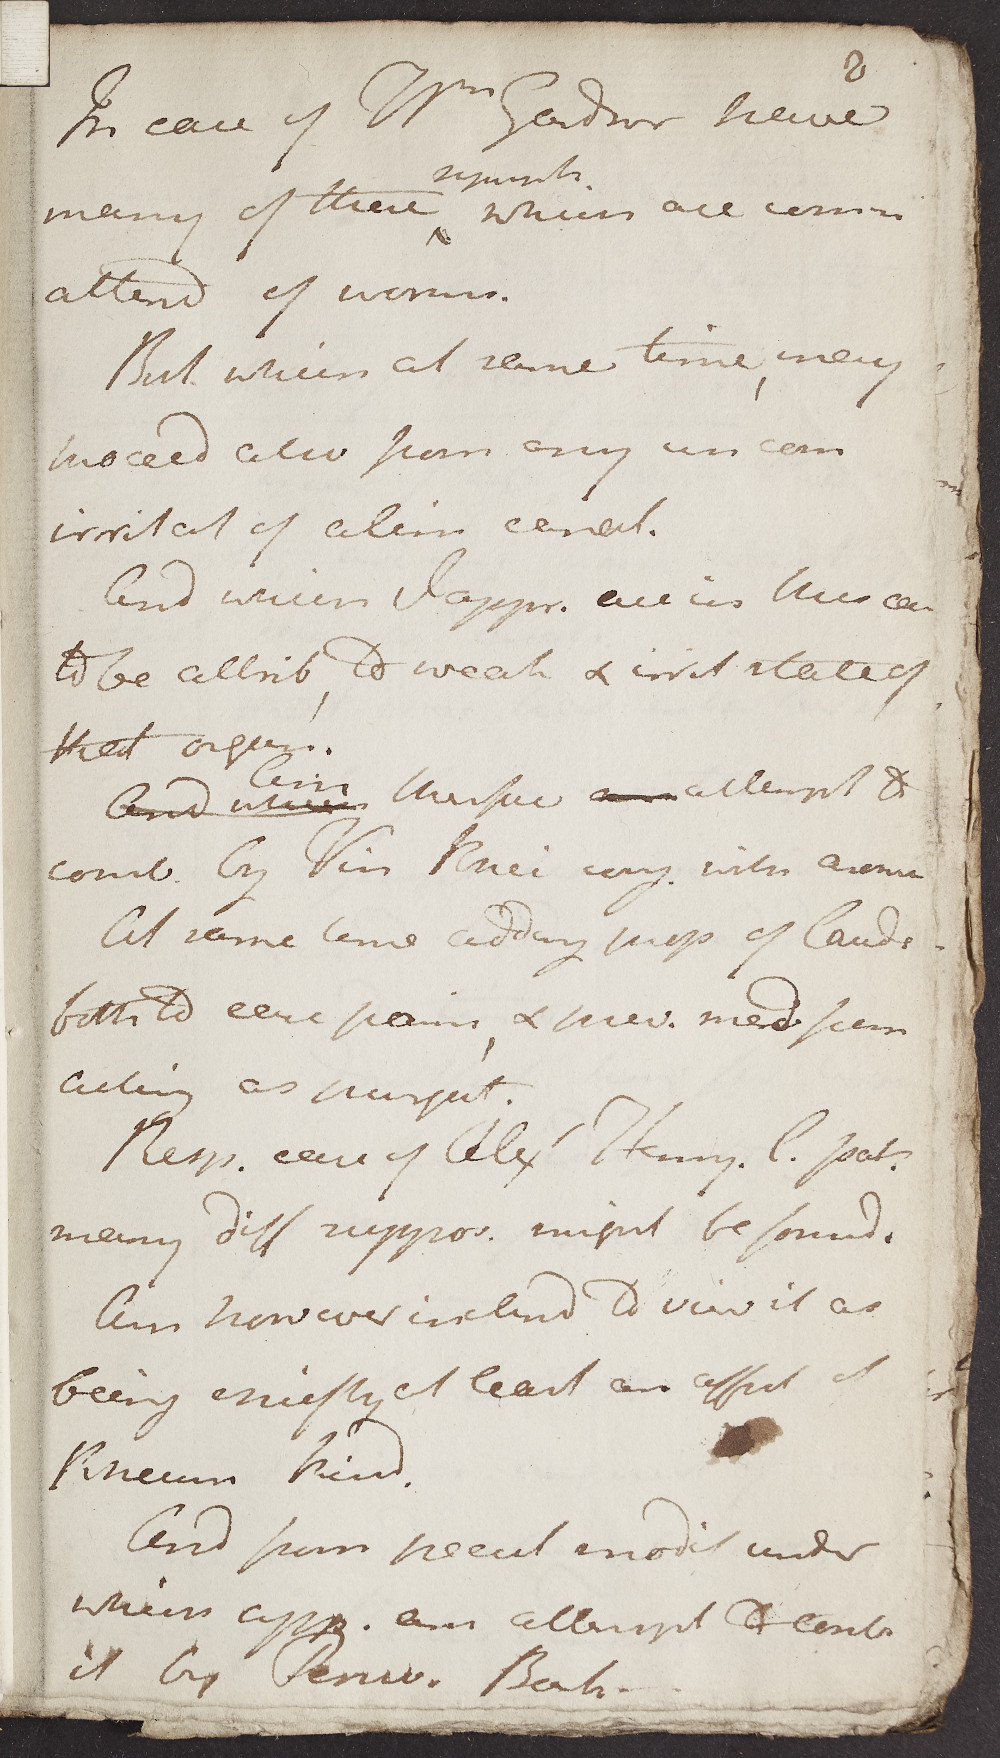 8
In case of Wm Gardner have
sympts.
many of these, which are comm
attend of worms.
But which at same time, may
proceed also from any un com
irritat of alim canal.
And which I appr. are in this ca
to be attrib, to weak & irrit state of
that organ.
Am
And which therefore am attempt to
comb. by Vin Rhei conj. with arom
At same time adding prop of Laud.
both to ease pain, & prev. med from
acting as purgat.
Resp. case of Alexr Henny. C. pat.
many diff suppos. might be found.
Am however inclind to view it as
being chiefly at least an affect of
Rheum kind.
And from pecul modif under
which app. am attempt to comb
it by Peruv. Bark.